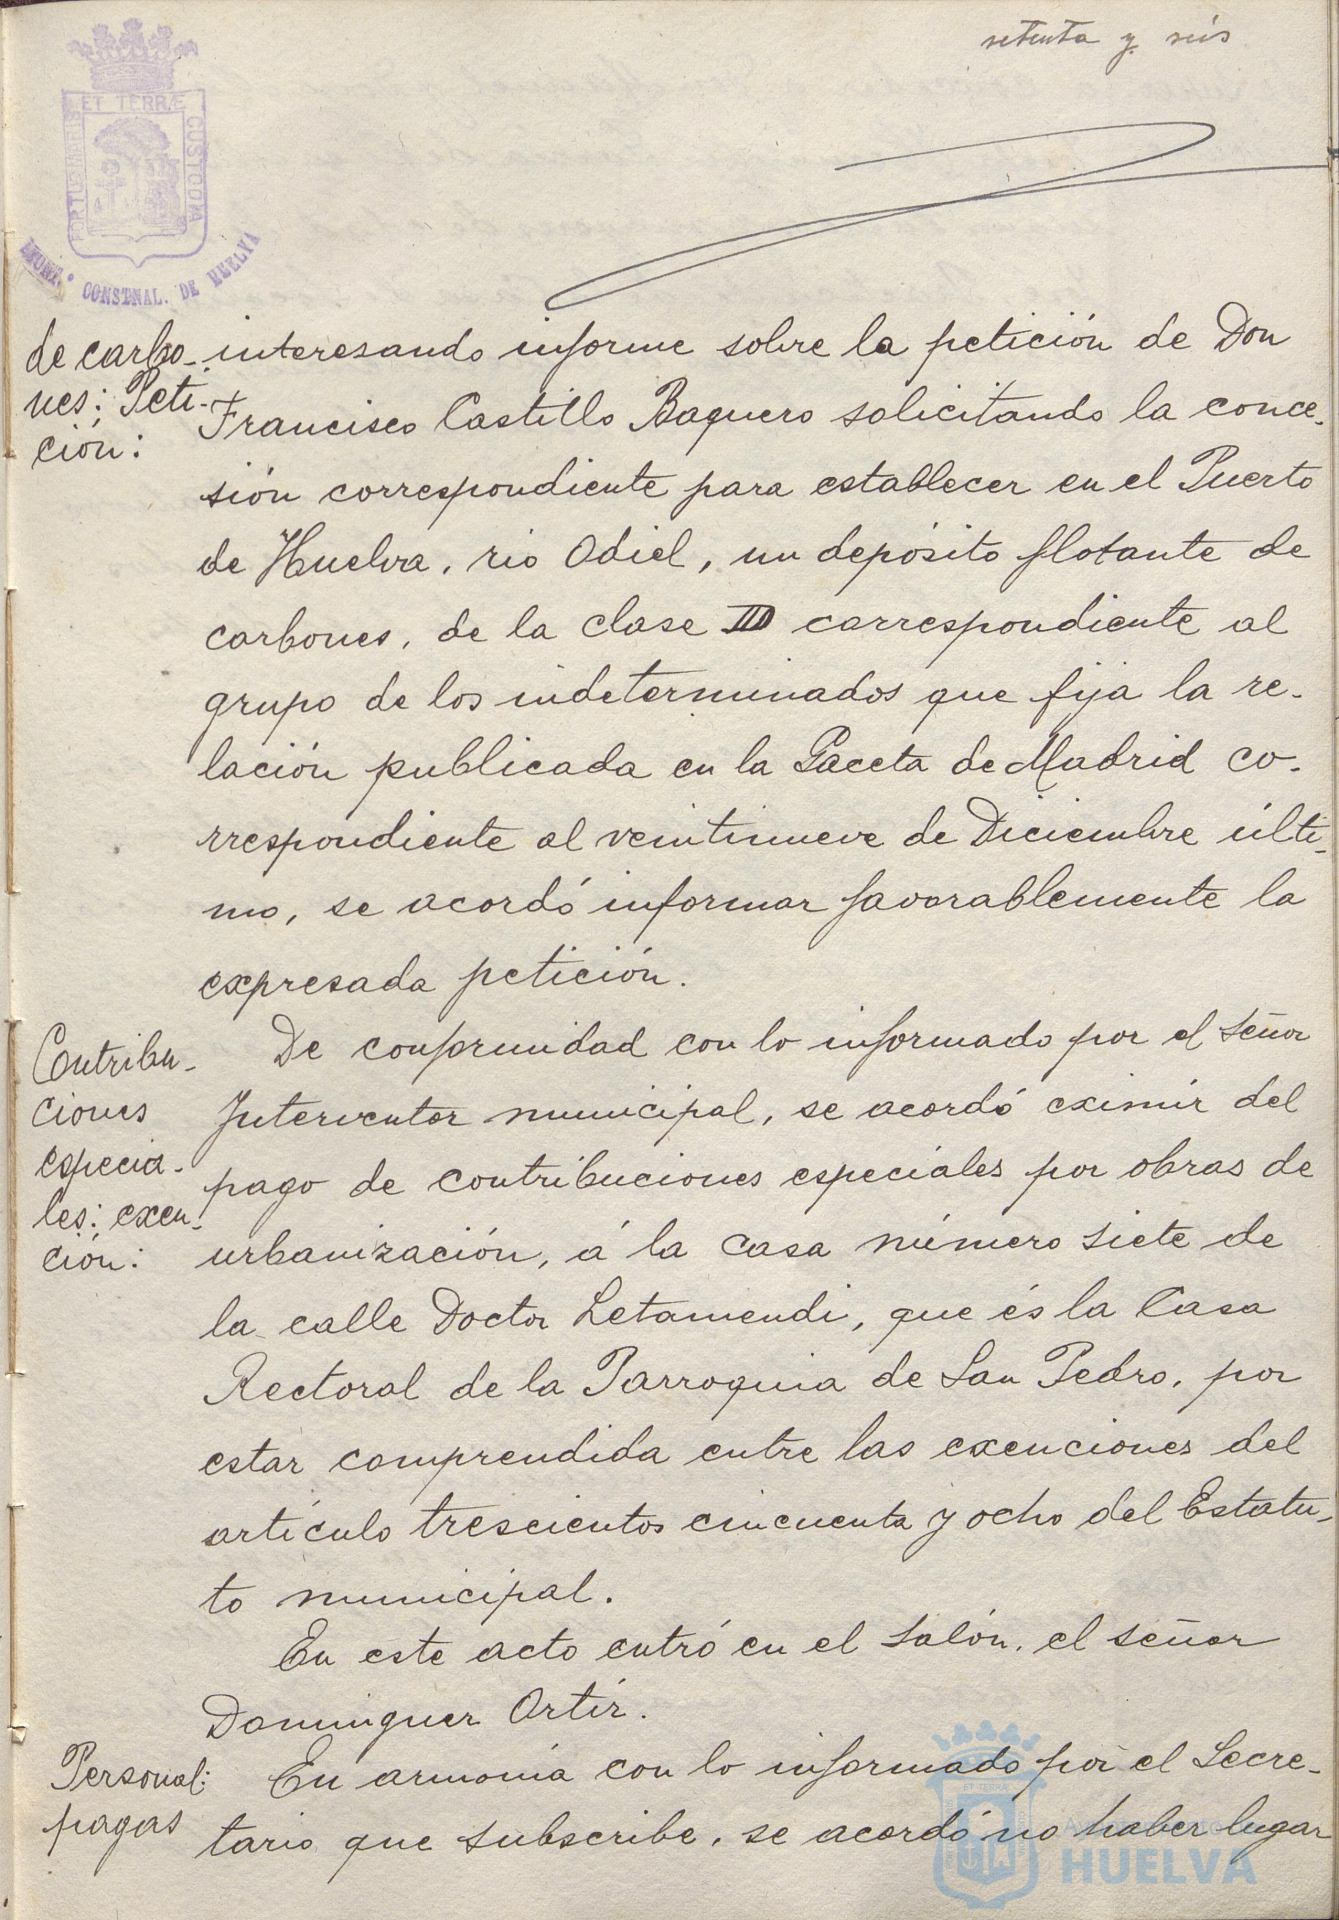 setenta y seis
PORTUS MARIS ET TERRÆ CUSTODIA
CONSTNAL. DE HUELVA
de carbo-
nes: Peti-
ción:
interesando informe sobre la petición de Don
Francisco Castillo Baquero solicitando la conce-
sión correspondiente para establecer en el Puerto
de Huelva, rio Odiel, un depósito flotante de
carbones, de la clase III correspondiente al
grupo de los indeterminados que fija la re-
lación publicada en la Gaceta de Madrid co-
rrespondiente al veintinueve de Diciembre últi-
mo, se acordó informar favorablemente la
expresada petición.
Contribu-
ciones
especia-
les: exen-
ción:
De conformidad con lo informado por el señor
Interventor municipal, se acordó eximir del
pago de contribuciones especiales por obras de
urbanización, á la casa número siete de
la calle Doctor Letamendi, que és la Casa
Rectoral de la Parroquia de San Pedro, por
estar comprendida entre las exenciones del
artículo trescientos cincuenta y ocho del Estatu-
to municipal.
En este acto entró en el salón, el señor
Dominguez Ortíz.
Personal:
pagas
En armonía con lo informado por el Secre-
tario que subscribe, se acordó no haber lugar
HUELVA